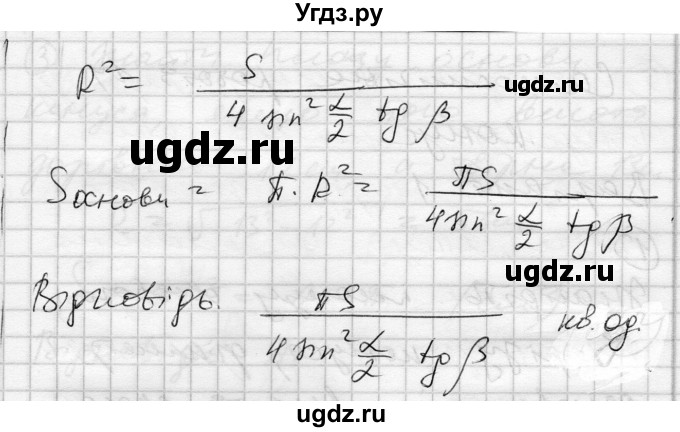 Угдз.ру
R² = S / (4 sin² α/2 tg β)
ugdz.ru
ugdz.ru
Sоснови = π · R² = πS / (4 sin² α/2 tg β)
ugdz.ru
Відповідь. πS / (4 sin² α/2 tg β) кв. од.
ugdz.ru
ugdz.ru